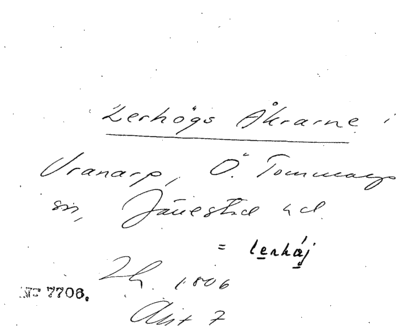 Lerhögs Åkrarne i
Vranarp, Ö. Tommarps
sn, Järrestad hd
= lerháj
Lh 1806
№ 7706.
Akt 7